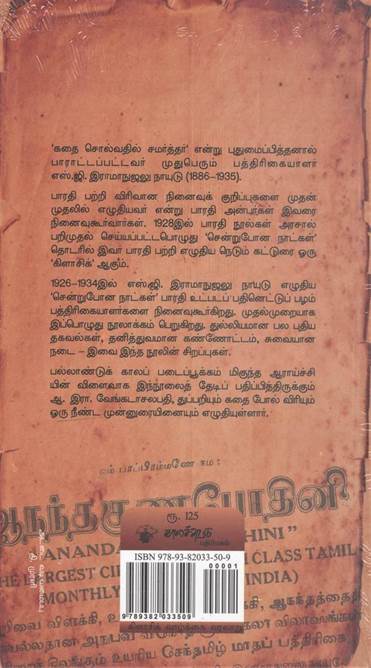 'கதை சொல்வதில் சமர்த்தர்' என்று புதுமைப்பித்தனால்
பாராட்டப்பட்டவர் முதுபெரும் பத்திரிகையாளர்
எஸ்.ஜி. இராமாநுஜலு நாயுடு (1886–1935).
பாரதி பற்றி விரிவான நினைவுக் குறிப்புகளை முதன்
முதலில் எழுதியவர் என்று பாரதி அன்பர்கள் இவரை
நினைவுகூர்வார்கள். 1928இல் பாரதி நூல்கள் அரசால்
பறிமுதல் செய்யப்பட்டபொழுது 'சென்றுபோன நாட்கள்'
தொடரில் இவர் பாரதி பற்றி எழுதிய நெடும் கட்டுரை ஒரு
'கிளாசிக்' ஆகும்.
1926–1934இல் எஸ்.ஜி. இராமாநுஜலு நாயுடு எழுதிய
'சென்றுபோன நாட்கள்' பாரதி உட்பட்ப பதினெட்டுப் பழம்
பத்திரிகையாளர்களை நினைவுகூர்கிறது. முதல்முறையாக
இப்பொழுது நூலாக்கம் பெறுகிறது. துல்லியமான பல புதிய
தகவல்கள், தனித்துவமான கண்ணோட்டம், சுவையான
நடை – இவை இந்த நூலின் சிறப்புகள்.
பல்லாண்டுக் காலப் படைப்பூக்கம் மிகுந்த ஆராய்ச்சி
யின் விளைவாக இந்நூலைத் தேடிப் பதிப்பித்திருக்கும்
ஆ. இரா. வேங்கடாசலபதி, துப்பறியும் கதை போல் விரியும்
ஒரு நீண்ட முன்னுரையினையும் எழுதியுள்ளார்.
ஆநந்தகுணபோதினி
ரூ. 125
காலச்சுவடு
பதிப்பகம்
ISBN 978-93-82033-50-9
00001
9 789382 033509
ANANDA HINI"
CLASS TAMIL
HE LARGEST CI INDIA)
MONTHLY
செந்தமிழ் மாதப் பத்திரிகை